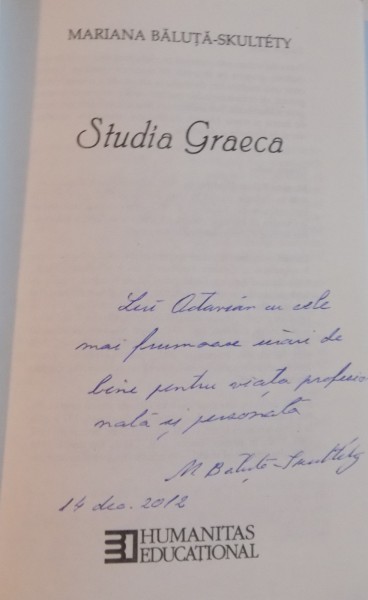 MARIANA BĂLUȚĂ-SKULTÉTY
Studia Graeca
Lui Octavian cu cele
mai frumoase urări de
bine pentru viața profesio
nală și personală
M Băluță-Skultéty
14 dec. 2012
HUMANITAS
EDUCATIONAL